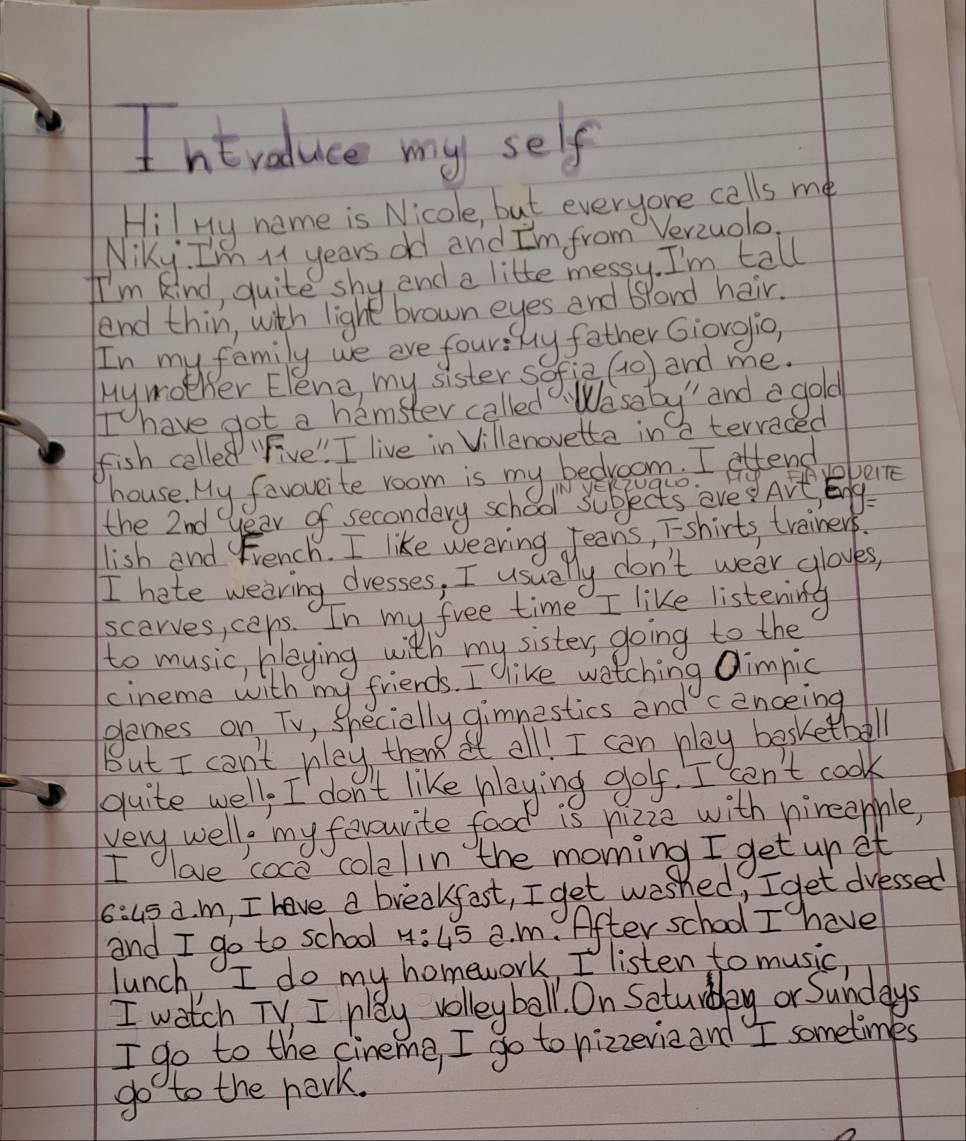 Introduce my self
Hi! My name is Nicole, but everyone calls me
Niky. I'm 11 years old and I'm from Verzuolo.
I'm kind, quite shy and a litte messy. I'm tall
and thin, with light brown eyes and blond hair.
In my family we are four: My father Giorgio,
My mother Elena, my sister Sofia (10) and me.
I have got a hamster called "Wasaby" and a gold
fish called "Five". I live in Villanovetta in a terraced
house. My favoueite room is my bedroom. I attend
IN VERZUOLO. MY FAVOUEITE
the 2nd year of secondary school subjects are: Art, Eng=
lish and French. I like wearing Jeans, T-shirts, trainers.
I hate wearing dresses; I usually don't wear gloves,
scarves, caps. In my free time I like listening
to music, playing with my sister, going to the
cinema with my friends. I like watching Olimpic
games on Tv, specially gimnastics and canoeing
But I can't play them at all! I can play basketball
quite well; I don't like playing golf. I can't cook
very well: my favourite food is pizza with pineapple,
I love coca cola! in the morning I get up at
6:45 a.m, I have a breakfast, I get washed, I get dressed
and I go to school 7:45 a.m. After school I have
lunch, I do my homework, I listen to music,
I watch TV, I play volleyball. On Saturday or Sundays
I go to the cinema, I go to pizzeria and I sometimes
go to the park.